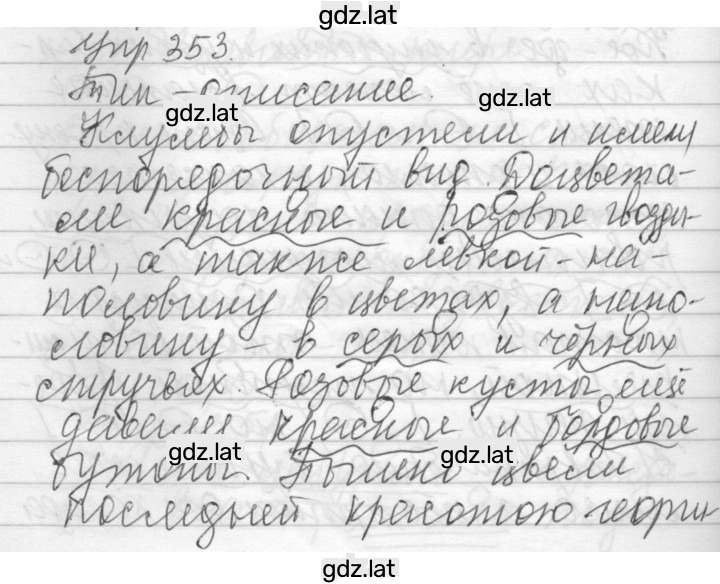 gdz.lat
Упр 353.
Тип - описание.
gdz.lat
gdz.lat
Клумбы опустели и имели
беспорядочный вид. Доцвета-
ли красные и розовые гвозди-
ки, а также левкой - на-
половину в цветах, а напо-
ловину - в серых и чёрных
стручьях. Розовые кусты ещё
давали красные и бордовые
gdz.lat
gdz.lat
бутоны. Пышно цвели
последней красотою георги
gdz.lat